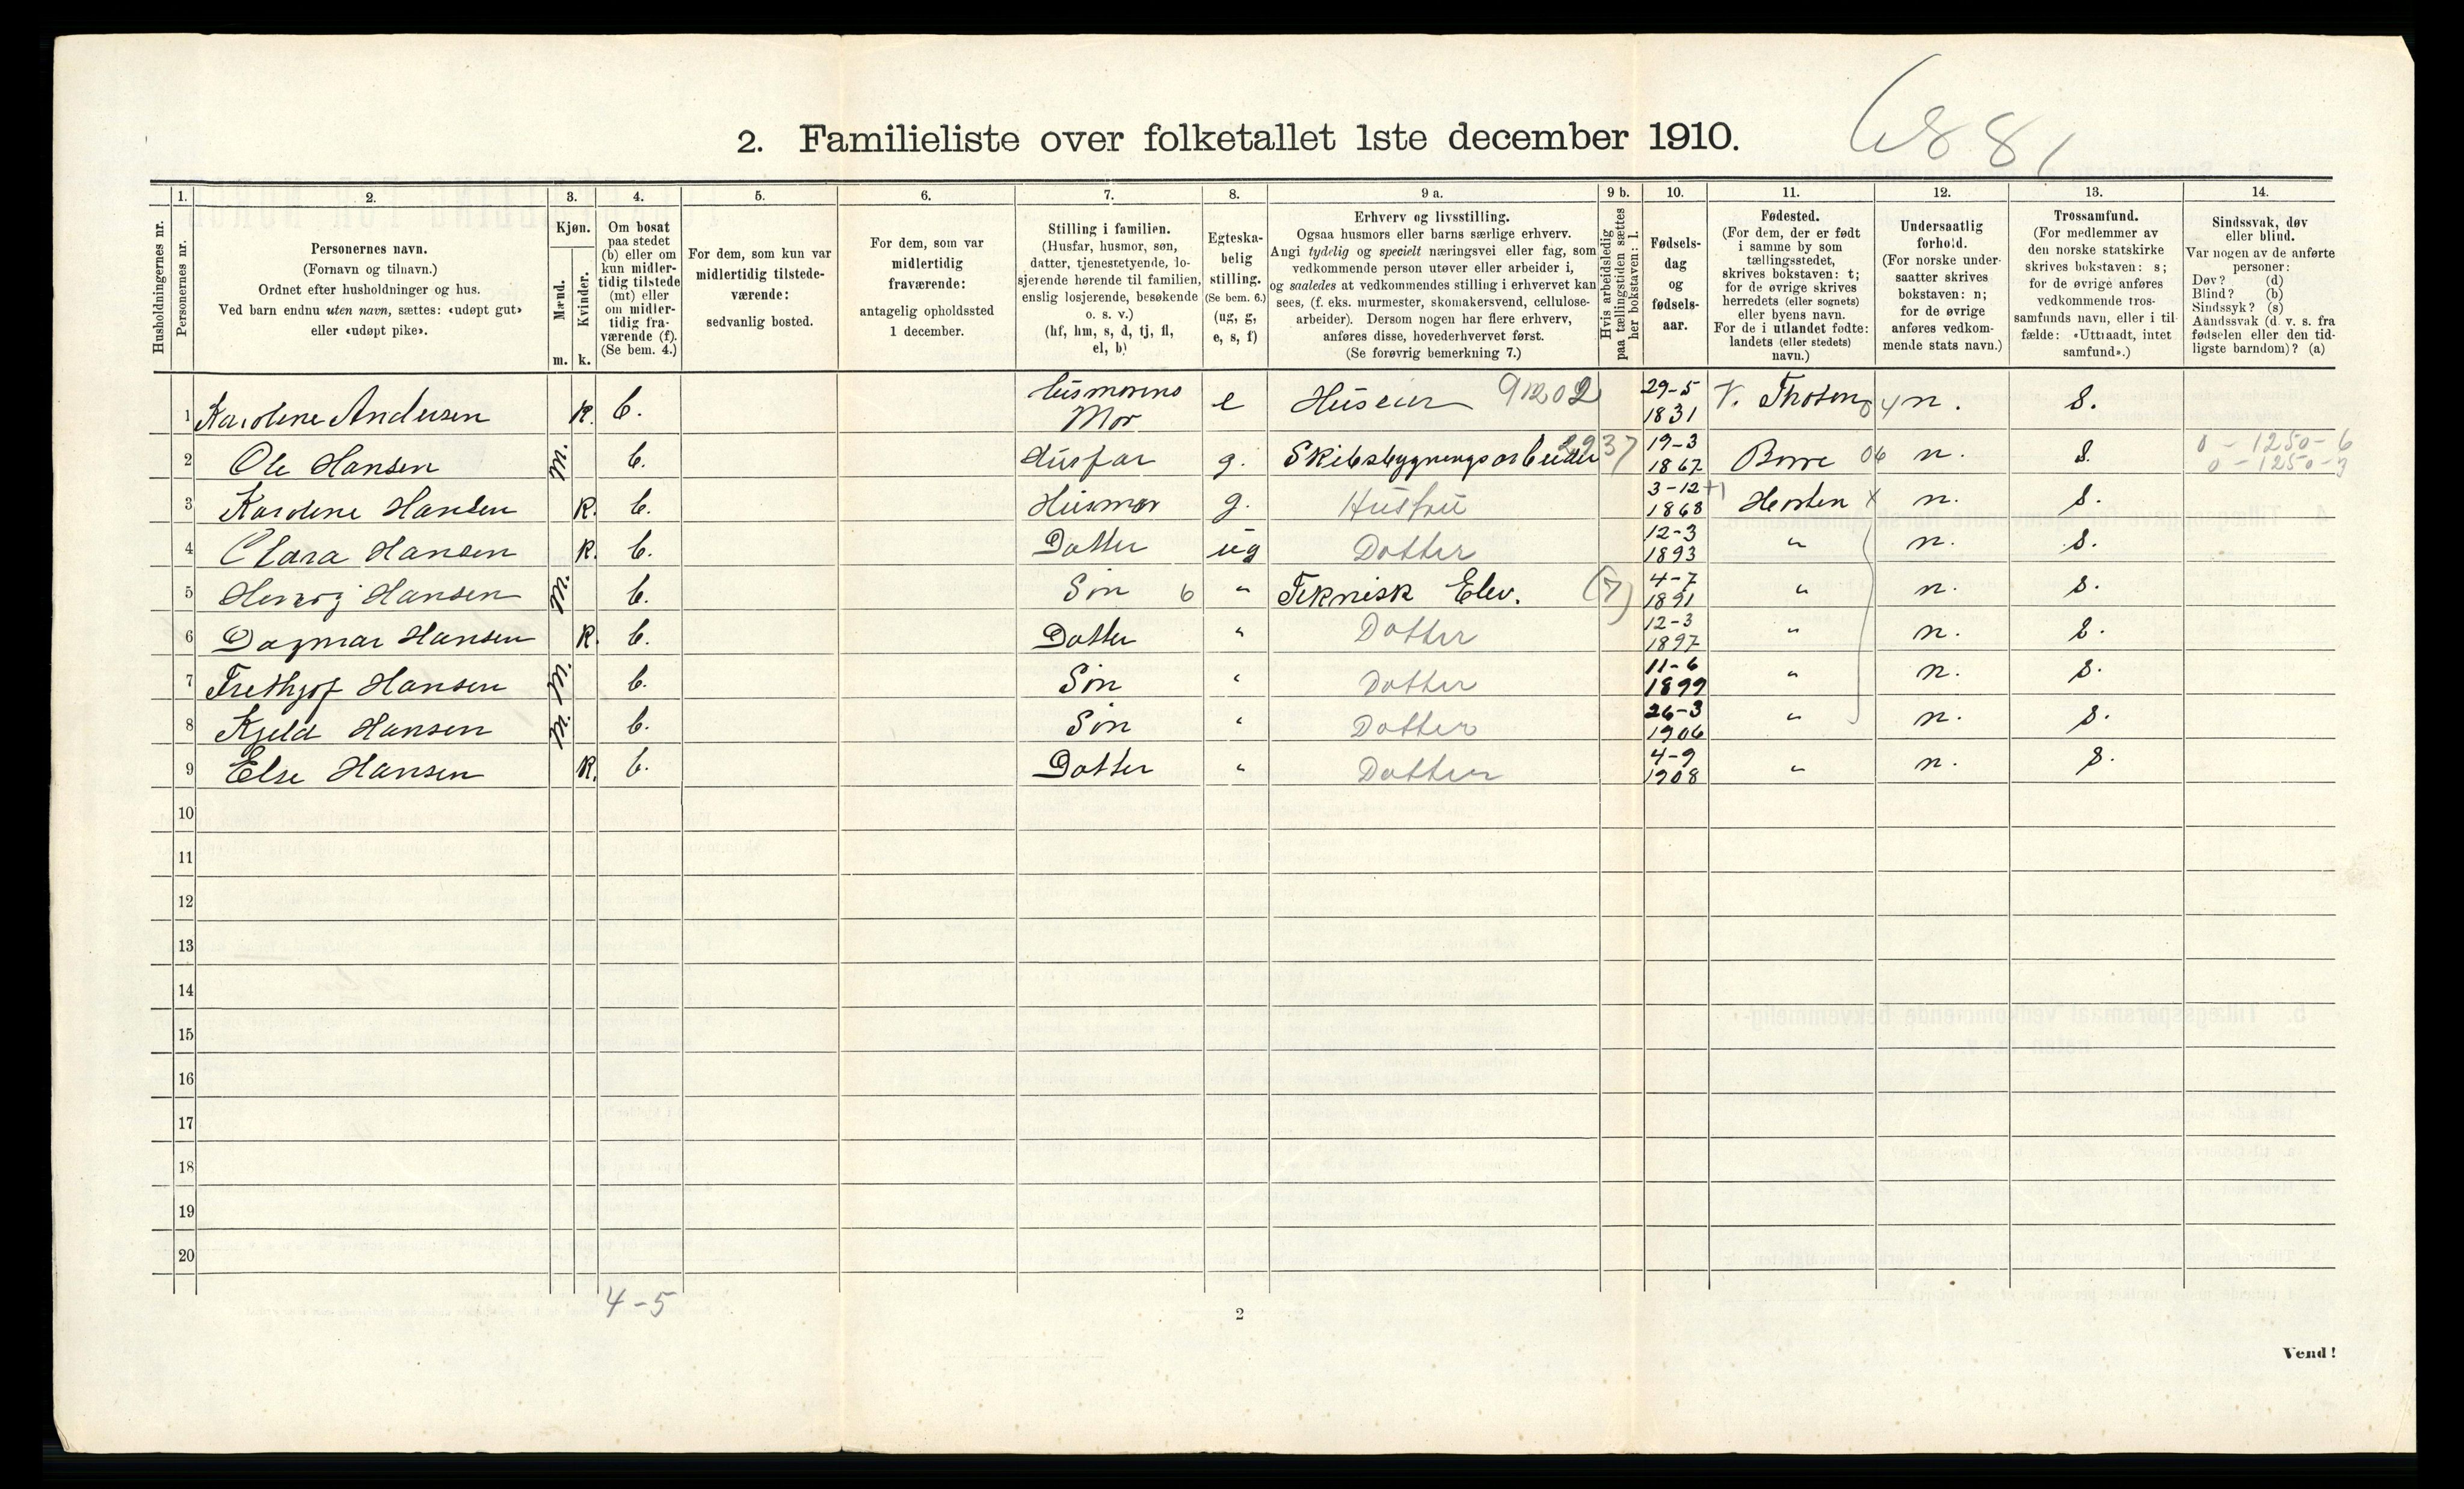 6881
2. Familieliste over folketallet 1ste december 1910.
1. 2. 3. 4. 5. 6. 7. 8. 9 a. 9 b. 10. 11. 12. 13. 14.
Husholdningernes nr.
Personernes nr.
Personernes navn.
(Fornavn og tilnavn.)
Ordnet efter husholdninger og hus.
Ved barn endnu uten navn, sættes: «udøpt gut»
eller «udøpt pike».
Kjøn.
Mænd.
Kvinder.
m. k.
Om bosat
paa stedet
(b) eller om
kun midler-
tidig tilstede
(mt) eller
om midler-
tidig fra-
værende (f).
(Se bem. 4.)
For dem, som kun var
midlertidig tilstede-
værende:
sedvanlig bosted.
For dem, som var
midlertidig
fraværende:
antagelig opholdssted
1 december.
Stilling i familien.
(Husfar, husmor, søn,
datter, tjenestetyende, lo-
sjerende hørende til familien,
enslig losjerende, besøkende
o. s. v.)
(hf, hm, s, d, tj, fl,
el, b)
Egteska-
belig
stilling.
(Se bem. 6.)
(ug, g,
e, s, f)
Erhverv og livsstilling.
Ogsaa husmors eller barns særlige erhverv.
Angi tydelig og specielt næringsvei eller fag, som
vedkommende person utøver eller arbeider i,
og saaledes at vedkommendes stilling i erhvervet kan
sees, (f. eks. murmester, skomakersvend, cellulose-
arbeider). Dersom nogen har flere erhverv,
anføres disse, hovederhvervet først.
(Se forøvrig bemerkning 7.)
Hvis arbeidsledig
paa tællingstiden sættes
her bokstaven: l.
Fødsels-
dag
og
fødsels-
aar.
Fødested.
(For dem, der er født
i samme by som
tællingsstedet,
skrives bokstaven: t;
for de øvrige skrives
herredets (eller sognets)
eller byens navn.
For de i utlandet fødte:
landets (eller stedets)
navn.)
Undersaatlig
forhold.
(For norske under-
saatter skrives
bokstaven: n;
for de øvrige
anføres vedkom-
mende stats navn.)
Trossamfund.
(For medlemmer av
den norske statskirke
skrives bokstaven: s;
for de øvrige anføres
vedkommende tros-
samfunds navn, eller i til-
fælde: «Uttraadt, intet
samfund».)
Sindssvak, døv
eller blind.
Var nogen av de anførte
personer:
Døv? (d)
Blind? (b)
Sindssyk? (s)
Aandssvak (d. v. s. fra
fødselen eller den tid-
ligste barndom)? (a)
1 Karolene Andersen K. b. Husmorens Mor e Huseier 91202 29-5 1831 V. Thoten 04 n. S.
2 Ole Hansen m. b. Husfar g. Skibsbygningsarbeider 2937 19-3 1867 Borre 06 n. S. 0 - 1250 - 6
0 - 1250 - 3
3 Karolene Hansen K. b. Husmor g. Hustru 3-12 1868 Horten x n. S.
4 Clara Hansen K. b. Datter ug Datter 12-3 1893 " n. S.
5 Hansen m. b. Søn 6 " Teknisk Elev. (7) 4-7 1891 " n. S.
6 Dagmar Hansen K. b. Datter " Datter 12-3 1897 " n. S.
7 Frethjof Hansen m. b. Søn " Datter 11-6 1899 " n. S.
8 Kjeld Hansen m. b. Søn " Datter 26-3 1906 " n. S.
9 Else Hansen K. b. Datter " Datter 4-9 1908 " n. S.
10
11
12
13
14
15
16
17
18
19
20
4-5
2
Vend!